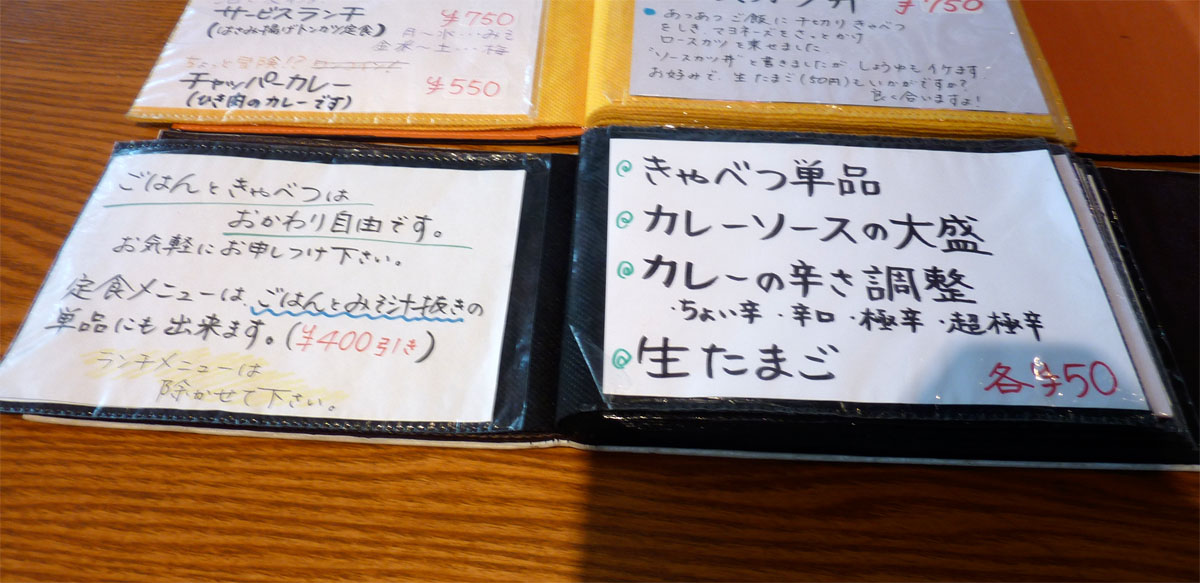 サービスランチ ¥750
(はさみ揚げトンカツ定食)
月～水…みそ
金末～土…梅
ちょっと冒険!?
チャッパーカレー ¥550
(ひき肉のカレーです)
¥750
・あつあつご飯に千切りきゃべつ
をしき、マヨネーズをさっとかけ
ロースカツを乗せました。
"ソースカツ丼"と書きましたがしょうゆもイケます。
お好みで生たまご(50円)もいかがですか?
良く合いますよ!
ごはんときゃべつは
おかわり自由です。
お気軽にお申しつけ下さい。
定食メニューは、ごはんとみそ汁抜きの
単品にも出来ます。(¥400引き)
ランチメニューは
除かせて下さい。
きゃべつ単品
カレーソースの大盛
カレーの辛さ調整
・ちょい辛・辛口・極辛・超極辛
生たまご
各¥50